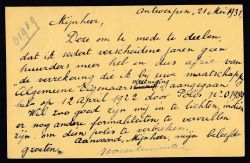 Antwerpen, 21 Mei 1931
01989
Mijnheer,
Deze om U mede te deelen,
dat ik sedert verscheidene jaren geen
huurders meer heb en dus afzie van
de verzekering die ik bij uwe maatschappij
Algemeene Eigenaars vereeniging aangegaan
heb op 12 April 1922 door Polis No 01989
Wil zoo goed zijn mij in te lichten, indien
er nog andere formaliteiten te vervullen
zijn om deze polis te verbreken.
Aanvaard, Mijnheer, mijn beleefde
groeten.